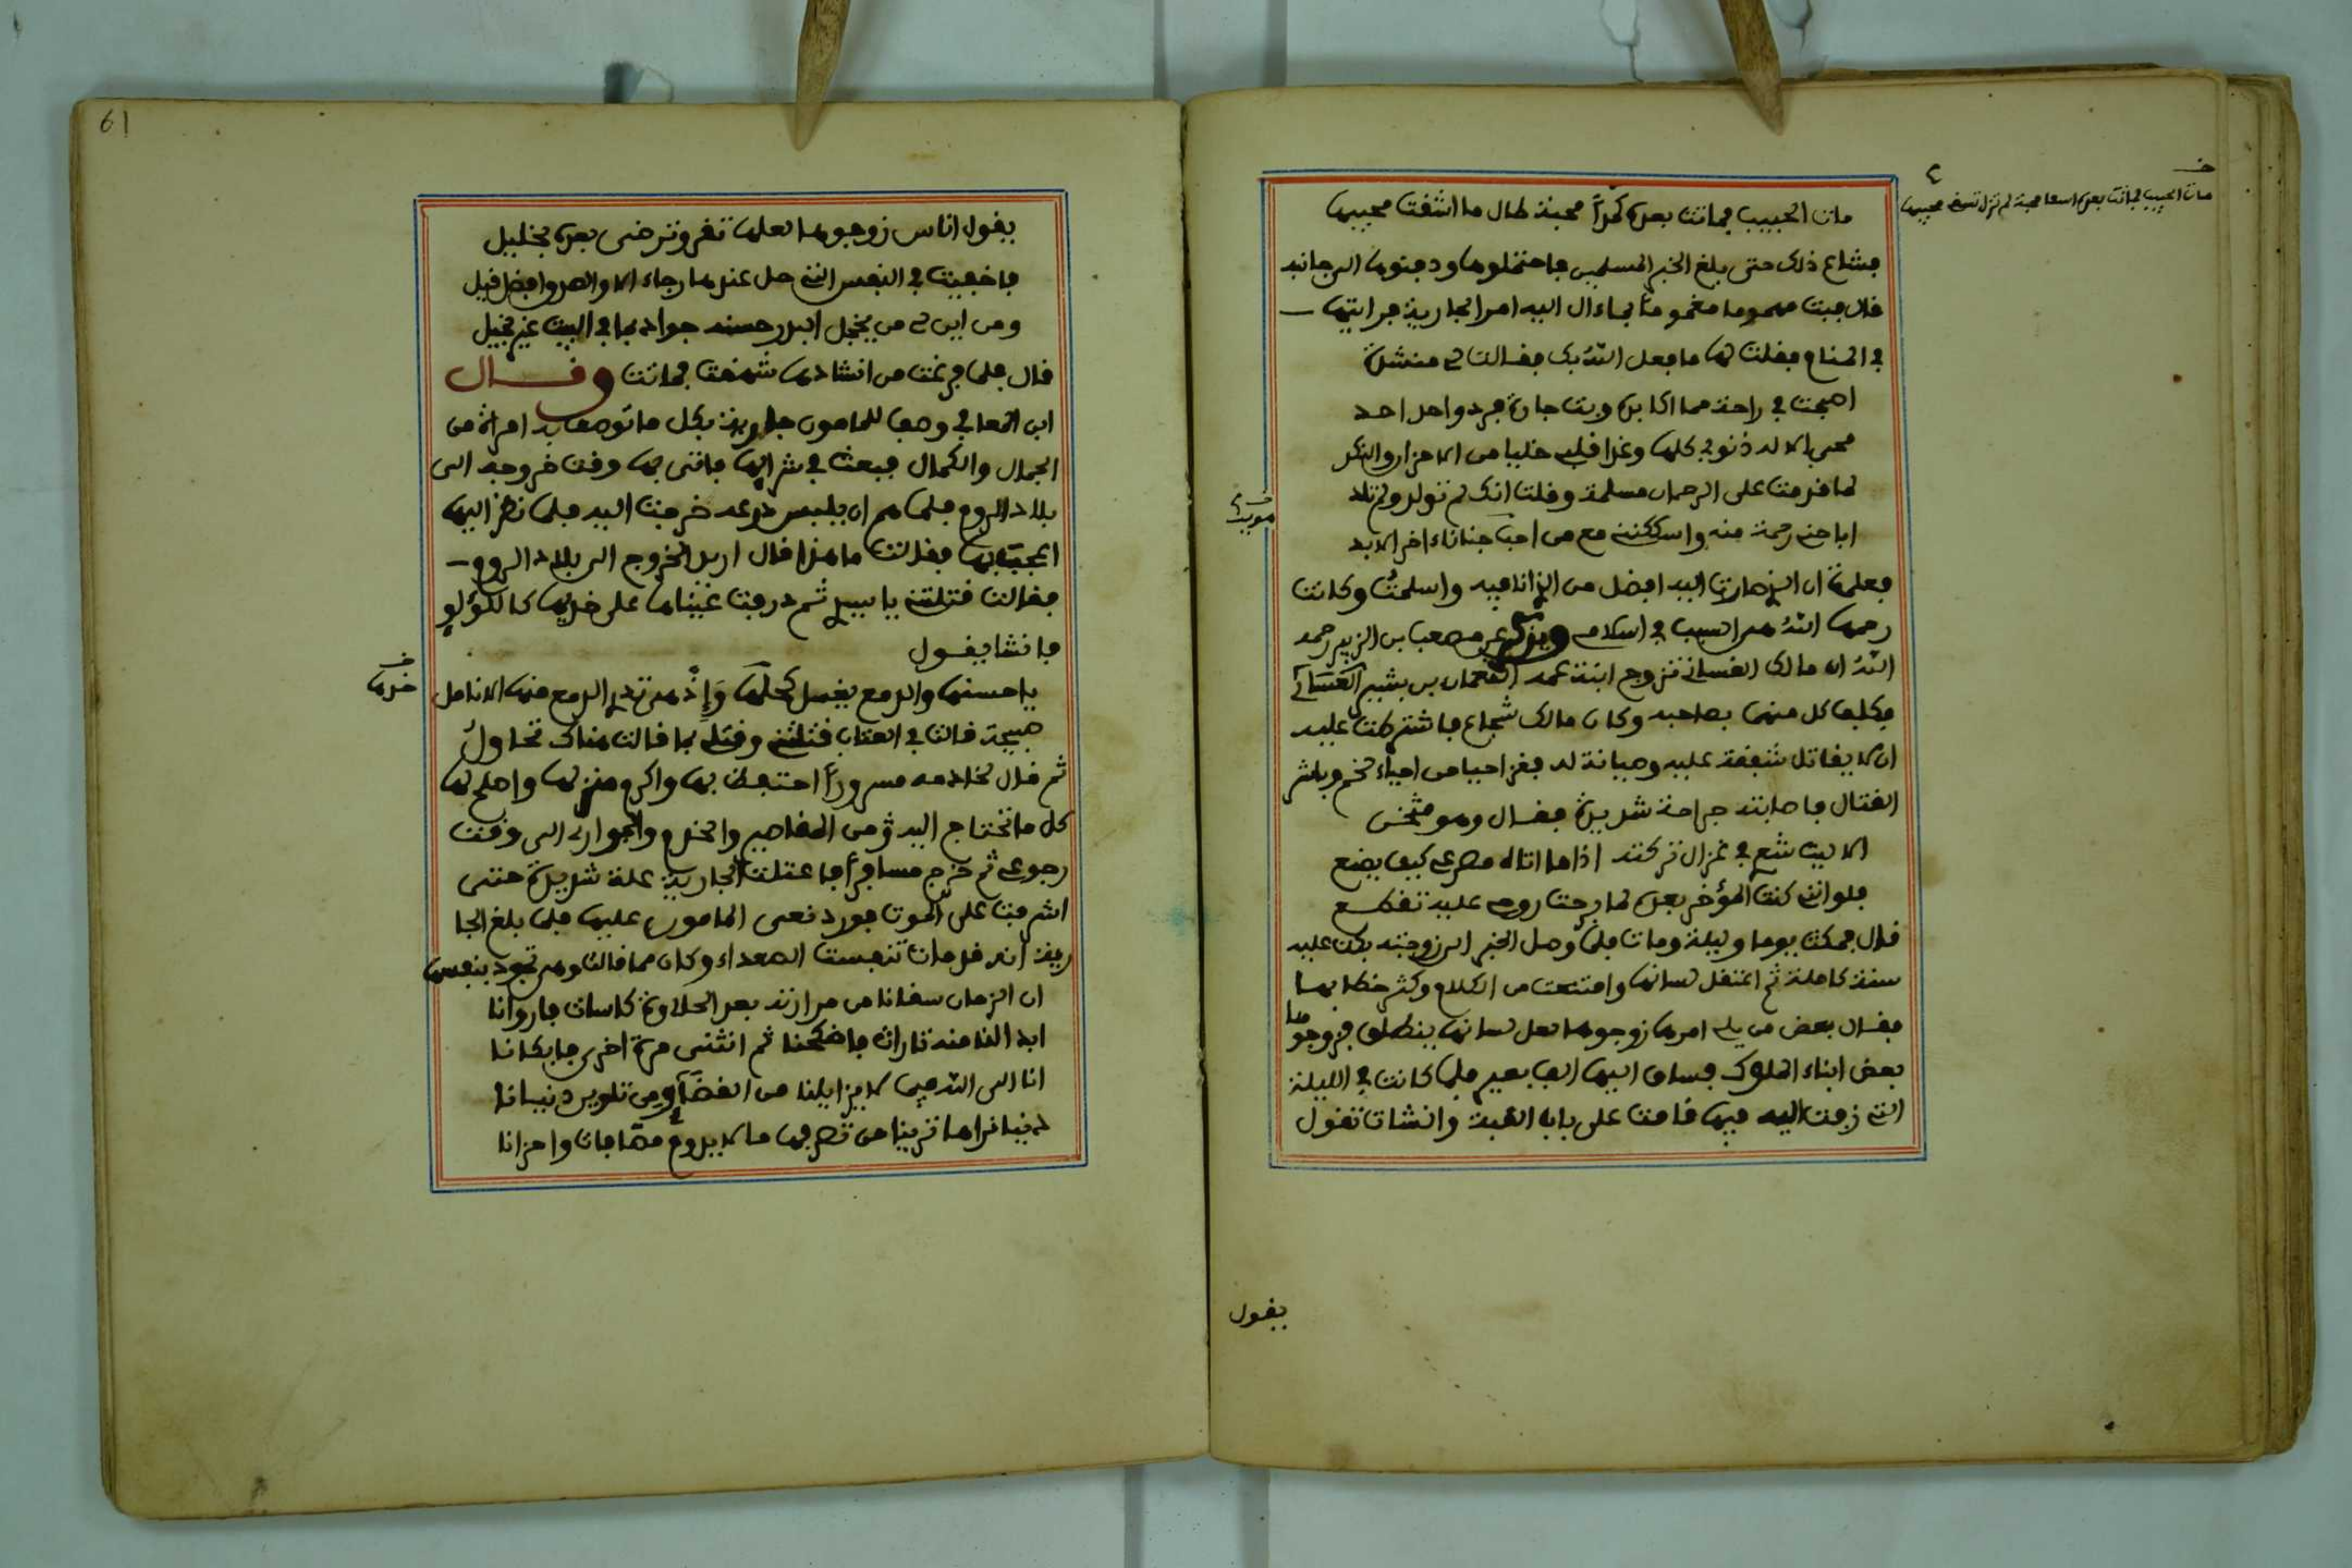 مات الحبيب فماتت بعده كمدا محبة طال ما اشفت محبيها
فشاع ذلك حتى بلغ الخبر المسلمين فاحتملوها ودفنوها الى جانبه
قال فبت مهموما مغموما بماءال اليه امر الجارية فرايتها
في المنام فقلت لها ما فعل الله بك فقالت لي منشدة
اصبحت في راحة مما اكابده وبت جارة فرد واحد احد
محى الاله ذنوبي كلها وغدا قلبي خليا من الاحزان والنكد
لما قدمت على الرحمان مسلمة وقلت انك لم تولد ولم تلد
اباحني رحمة منه واسكنني مع من احب جنانا ءاخر الابد
فعلمت ان الذي صارت اليه افضل من الذي انا فيه واسلمت وكانت
رحمها الله هي السبب في اسلامي ويذكر عن مصعب بن الزبير رحمه
الله ان مالك الغساني تزوج ابنة عمه النعمان بن بشير الغساني
وكلف كل منهما بصاحبه وكان مالك شجاع فاشترطت عليه
ان لا يقاتل شفقة عليه وصيانة له فغزا حيا من احياء لخم وباشر
القتال فاصابته جراحة شديدة فقال وهو مثخن
الا ليت شعري في غزال تركته اذا ما اتاه مصرعي كيف يصنع
فلو انني كنت المؤخر بعده لما برحت روحي عليه تقطع
قال فمكث يوما وليلة ومات فلما وصل الخبر الى زوجته بكت عليه
سنة كاملة ثم اعتقل لسانها وامتنعت من الكلام وكثر خطابها
فقال بعض من يلي امرها زوجوها لعل لسانها ينطلق فزوجوها
بعض ابناء الملوك فساق اليها الف بعير فلما كانت في الليلة
التي زفت اليه فيها قامت على باب القبة وانشات تقول
مات الحبيب فماتت بعده اسفا محبة لم تزل تسقى محبيها
يقول
61
يقول اناس زوجوها لعلها تقر وترضى بعده بخليل
فاخفيت في النفس التي حل عندها رجاء الا والصدق افضل قيل
ومن اين لي من يخجل البدر حسنه جواد بما في البيت غير بخيل
قال فلما فرغت من انشادها شهقت فماتت وقال
ابن الجعافي وصف للمامون جارية بكل ما توصف به امراة من
الجمال والكمال فبعث في شرايها فاتى بها وقت خروجه الى
بلاد الروم فلما هم ان يلبس درعه خرجت اليه فلما نظر اليها
اعجب بها فقالت ما هذا قال اريد الخروج الى بلاد الروم
فقالت قتلتني يا سيدي ثم ذرفت عيناها على خديها كاللؤلؤ
فانشا يقول
يا حسنها والدمع يغسل كحلها وإذ هي تذري الدمع منها الانامل
صبيحة قالت في العتاب قتلتني وقتلي بما قالت هناك تحاول
ثم قال لخادمه مسرورا احتفظ بها واكرم منزلها واصلح لها
كل ما تحتاج اليه من المقاصير والخدم والجواري الى وقت
رجوعي ثم خرج مسافرا فاعتلت الجارية علة شديدة حتى
اشرفت على الموت فورد نعي المامون عليها فلما بلغ الجا
رية انه قد مات تنفست الصعداء وكان مما قالت وهي تجود بنفسها
ان الزمان سقانا من مرارته بعد الحلاوة كاسات فاروانا
ابدا لنا منه تارات فاضحكنا ثم انثنى مرة اخرى فابكانا
انا الى الله فيما لا يزايلنا من القضاء ومن تلوين دنيانا
دنيا نراها ترينا من تصرفها ما لا يدوم مصافات واحزانا
خدها